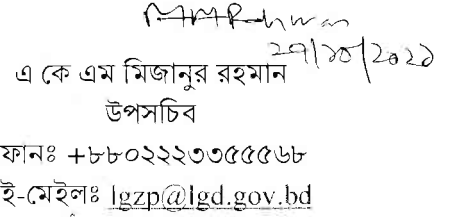 ২৭/১০/২০২১
এ কে এম মিজানুর রহমান
উপসচিব
ফানঃ +৮৮০২২২৩৩৫৫৫৬৮
ই-মেইলঃ lgzp@lgd.gov.bd